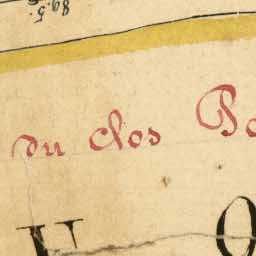 89.5.
du clos Bo
V O